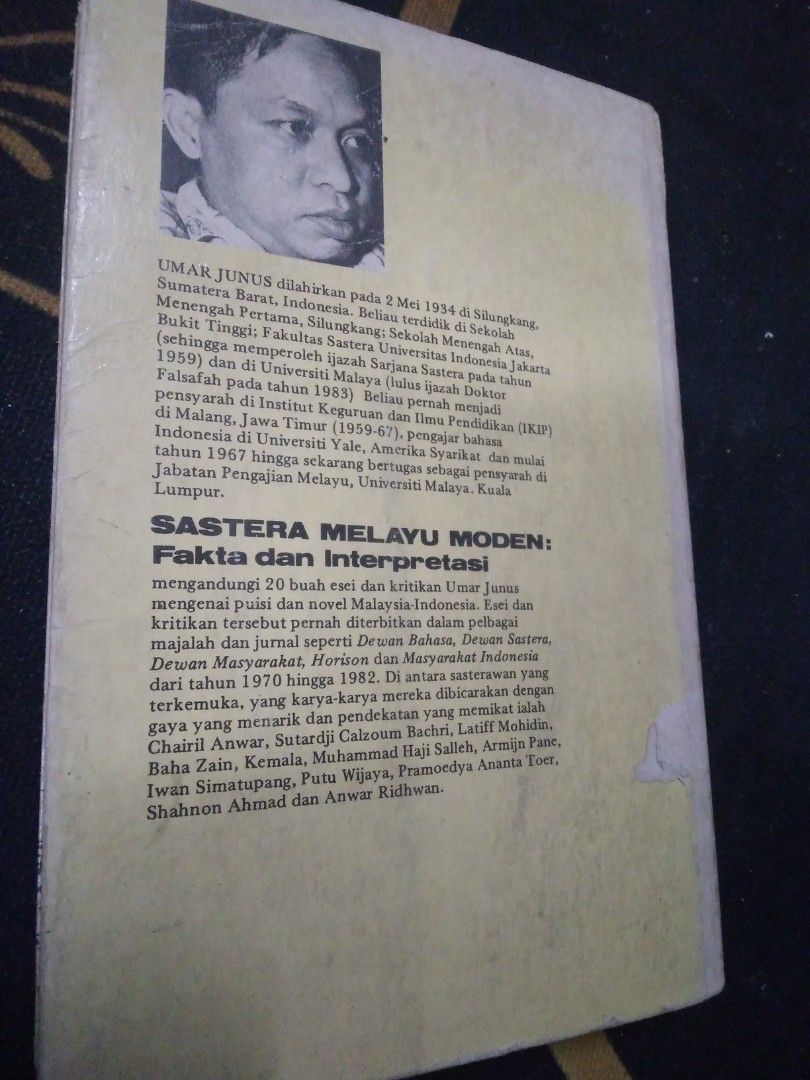 UMAR JUNUS dilahirkan pada 2 Mei 1934 di Silungkang,
Sumatera Barat, Indonesia. Beliau terdidik di Sekolah
Menengah Pertama, Silungkang; Sekolah Menengah Atas,
Bukit Tinggi; Fakultas Sastera Universitas Indonesia Jakarta
(sehingga memperoleh ijazah Sarjana Sastera pada tahun
1959) dan di Universiti Malaya (lulus ijazah Doktor
Falsafah pada tahun 1983) Beliau pernah menjadi
pensyarah di Institut Keguruan dan Ilmu Pendidikan (IKIP)
di Malang, Jawa Timur (1959-62), pengajar bahasa
Indonesia di Universiti Yale, Amerika Syarikat dan mulai
tahun 1967 hingga sekarang bertugas sebagai pensyarah di
Jabatan Pengajian Melayu, Universiti Malaya, Kuala
Lumpur.
SASTERA MELAYU MODEN:
Fakta dan Interpretasi
mengandungi 20 buah esei dan kritikan Umar Junus
mengenai puisi dan novel Malaysia-Indonesia. Esei dan
kritikan tersebut pernah diterbitkan dalam pelbagai
majalah dan jurnal seperti Dewan Bahasa, Dewan Sastera,
Dewan Masyarakat, Horison dan Masyarakat Indonesia
dari tahun 1970 hingga 1982. Di antara sasterawan yang
terkemuka, yang karya-karya mereka dibicarakan dengan
gaya yang menarik dan pendekatan yang memikat ialah
Chairil Anwar, Sutardji Calzoum Bachri, Latiff Mohidin,
Baha Zain, Kemala, Muhammad Haji Salleh, Armijn Pane,
Iwan Simatupang, Putu Wijaya, Pramoedya Ananta Toer,
Shahnon Ahmad dan Anwar Ridhwan.